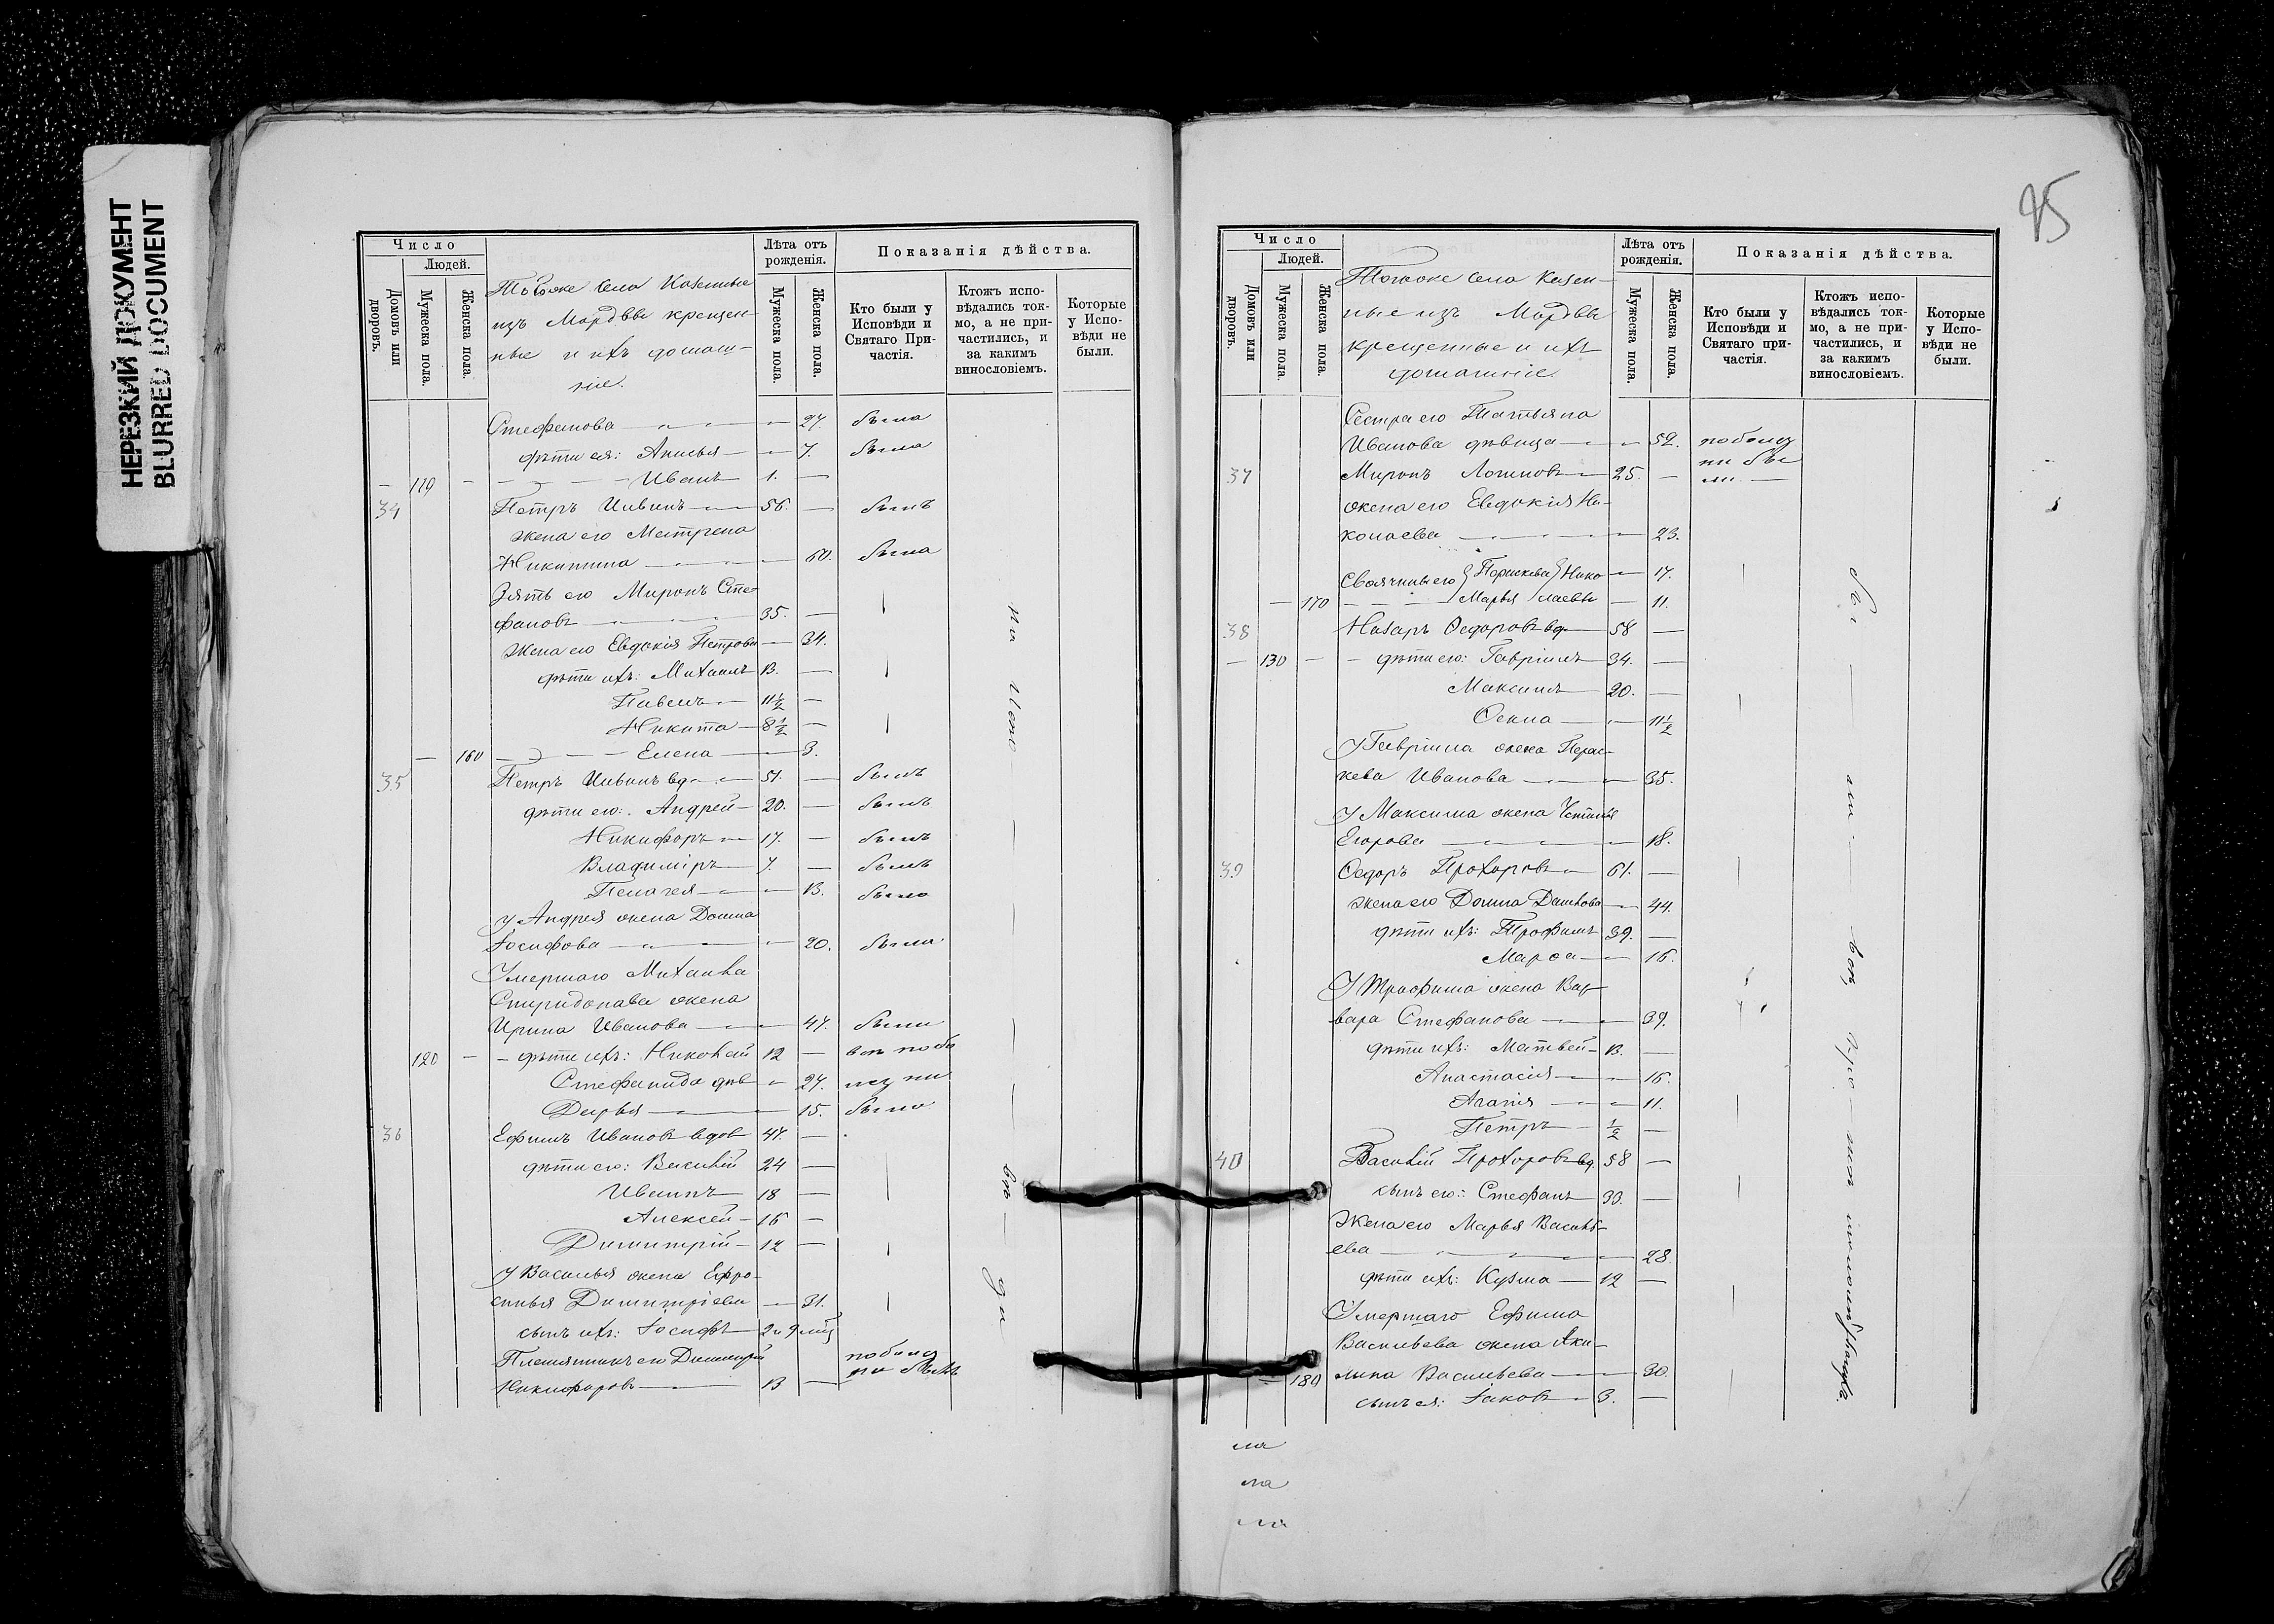 НЕРЕЗКИЙ ДОКУМЕНТ
BLURRED DOCUMENT
Число
Людей.
Домовъ или дворовъ.
Мужеска пола.
Женска пола.
Тогоже села Казенные
изъ Мордвы крещен-
ные и ихъ домаш-
ніе.
Лѣта отъ рожденія.
Мужеска пола.
Женска пола.
Показанія дѣйства.
Кто были у Исповѣди и Святаго При-частія.
Ктожъ испо-вѣдались ток-мо, а не при-частились, и за какимъ винословіемъ.
Которые у Испо-вѣди не были.
Стефанова — 27. была
дѣти ея: Анисья — 7. была
— 119 — Иванъ 1. —
34 Петръ Ивинъ — 56. — былъ
жена его Матрена
Никитина — 60. была
Зять его Миронъ Сте-
фановъ — 35. —
жена его Евдокія Петрова — 34.
дѣти ихъ: Михаилъ 13. —
Павелъ — 11½ —
Никита — 8½ —
— 160 — Елена — 3.
35 Петръ Ивинъ вд. — 51. — былъ
дѣти его: Андрей — 20. — былъ
Никифоръ — 17. — былъ
Владиміръ — 7. — былъ
Пелагея — 13. была
У Андрея жена Домна
Іосифова — 20. была
Умершаго Михаила
Спиридонава жена
Ирина Иванова — 47. были
120 — дѣти ихъ: Николай 12 —
Стефанида дѣв — 27.
Дарья — 15. было
36 Ефимъ Ивановъ вдов 47. —
дѣти его: Василій 24 —
Иванъ 18 —
Алексей — 16 —
Димитрій — 12 —
У Василья жена Ефро-
синья Димитріева — 31.
сынъ ихъ: Іосифъ — 2 и 9 мѣц
Племянникъ его Димитрій
Никифоровъ — 13 —
85
Число
Людей.
Домовъ или дворовъ.
Мужеска пола.
Женска пола.
Тогоже села Казен-
ные изъ Мордвы
крещенные и ихъ
домашніе.
Лѣта отъ рожденія.
Мужеска пола.
Женска пола.
Показанія дѣйства.
Кто были у Исповѣди и Святаго при-частія.
Ктожъ испо-вѣдались ток-мо, а не при-частились, и за какимъ винословіемъ.
Которые у Испо-вѣди не были.
Сестра его Татьяна
Иванова дѣвица — 52.
37 Миронъ Логиновъ — 25. —
жена его Евдокія Ни-
колаева — 23.
Своячины его Параскева Нико- — 17.
— 170 — Марья лаевы — 11.
38 Назаръ Ѳедоровъ вд. 58 —
— 130 — дѣти его: Гавріилъ 34. —
Максимъ 20. —
Ѳекла — 11½
У Гавріила жена Парас-
кева Иванова — 35.
У Максима жена Устинья
Егорова — 18.
39 Ѳедоръ Прохоровъ 61. —
жена его Домна Данилова — 44.
дѣти ихъ: Трофимъ 39. —
Марѳа — 16.
У Трофима жена Вар-
вара Стефанова — 39.
дѣти ихъ: Матвей — 13. —
Анастасія — 16.
Агапія — 11.
Петръ — ½ —
40 Василій Прохоровъ вд. 58 —
сынъ его: Стефанъ 33. —
жена его Марья Василь-
ева — 28
дѣти ихъ: Кузма — 12 —
Умершаго Ефима
Васильева жена Аки-
— 180 лина Васильева — 30.
сынъ ея: Іаковъ — 3. —
ла
ла
ла